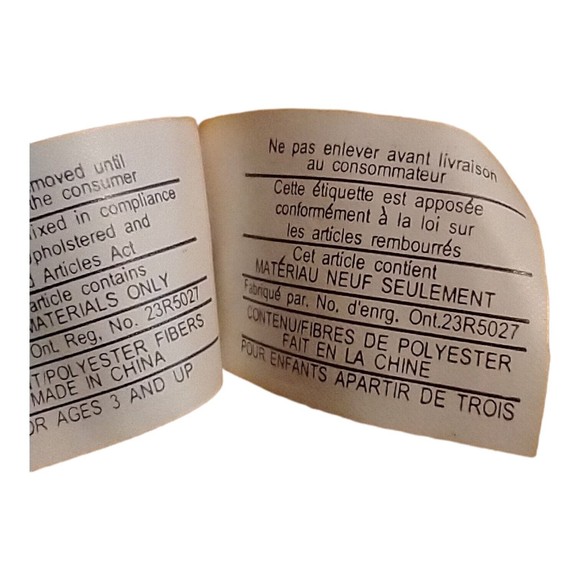 moved until
the consumer
ixed in compliance
pholstered and
Articles Act
article contains
MATERIALS ONLY
Ont. Reg, No. 23R5027
T/POLYESTER FIBERS
MADE IN CHINA
OR AGES 3 AND UP
Ne pas enlever avant livraison
au consommateur
Cette étiquette est apposée
conformément à la loi sur
les articles rembourrés
Cet article contient
MATÉRIAU NEUF SEULEMENT
Fabriqué par. No. d'enrg. Ont.23R5027
CONTENU/FIBRES DE POLYESTER
FAIT EN LA CHINE
POUR ENFANTS APARTIR DE TROIS